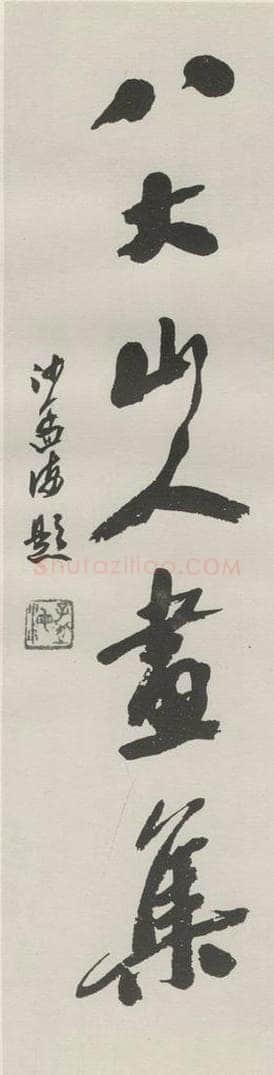 八大山人畫集
沙孟海題
shufaziliao.com